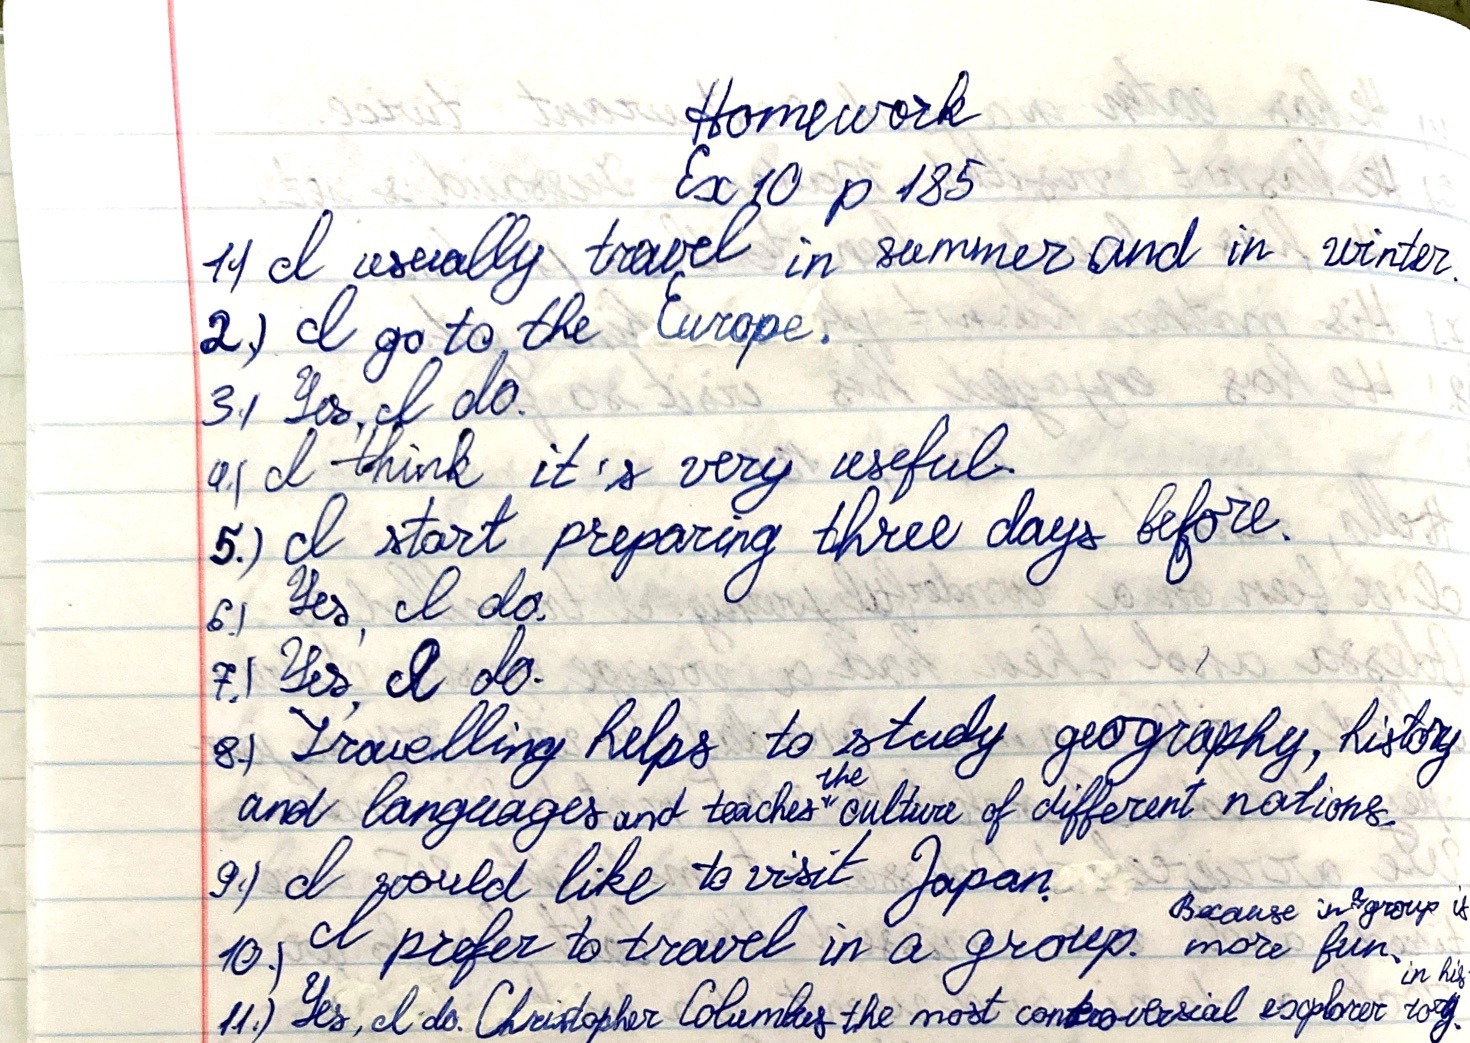 Homework
Ex 10 p 185
1) I usually travel in summer and in winter.
2.) I go to the Europe.
3.) Yes, I do.
4.) I think it's very useful.
5.) I start preparing three days before.
6.) Yes, I do.
7.) Yes, I do.
8.) Travelling helps to study geography, history
and languages and teaches the culture of different nations.
9.) I would like to visit Japan.
10.) I prefer to travel in a group. Because in a group is
more fun.
11.) Yes, I do. Christopher Columbus the most controversial explorer in history.